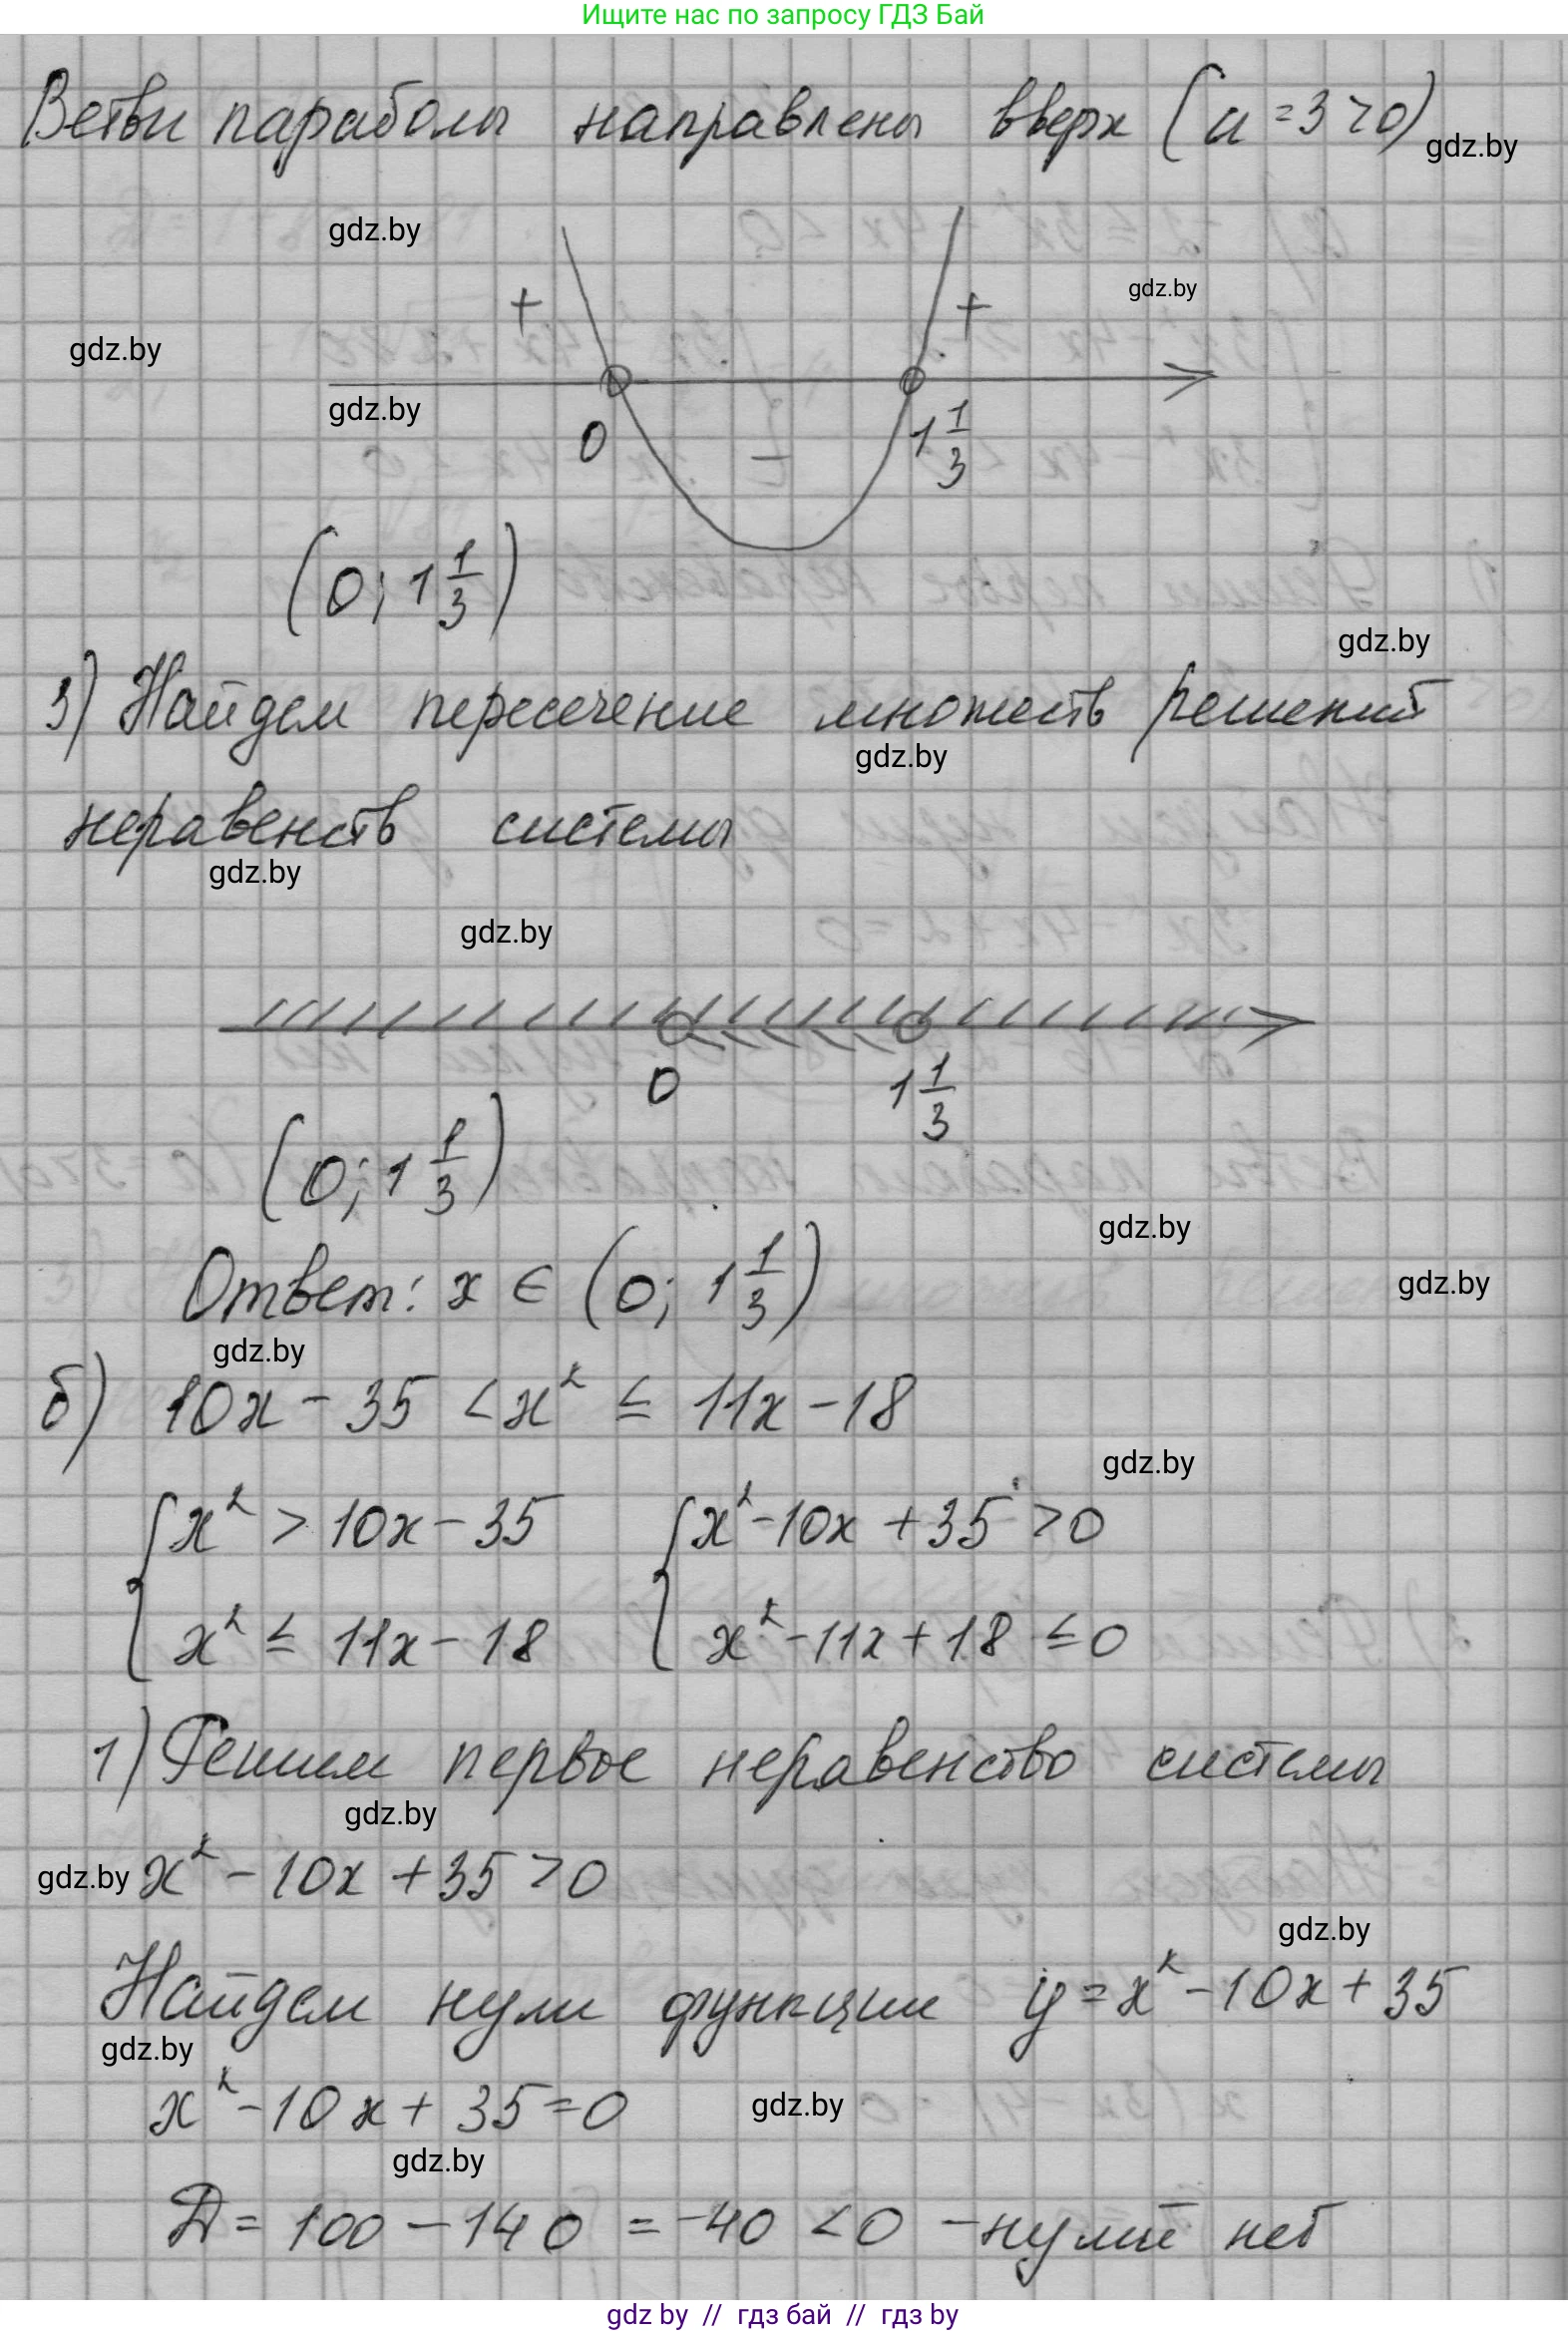 Ищите нас по запросу ГДЗ Бай
Ветви параболы направлены вверх (a=3>0)
gdz.by
gdz.by
gdz.by
+ +
gdz.by
gdz.by
0 - 1 1/3
(0; 1 1/3)
gdz.by
3) Найдем пересечение множеств решений
gdz.by
неравенств системы
gdz.by
gdz.by
0 1 1/3
(0; 1 1/3)
gdz.by
Ответ: x ∈ (0; 1 1/3)
gdz.by
gdz.by
б) 10x - 35 < x² ≤ 11x - 18
gdz.by
{ x² > 10x - 35 { x² - 10x + 35 > 0
x² ≤ 11x - 18 x² - 11x + 18 ≤ 0
1) Решим первое неравенство системы
gdz.by
gdz.by x² - 10x + 35 > 0
gdz.by
Найдем нули функции y = x² - 10x + 35
gdz.by
x² - 10x + 35 = 0
gdz.by
gdz.by
D = 100 - 140 = -40 < 0 - нулей нет
gdz by // гдз бай // гдз by